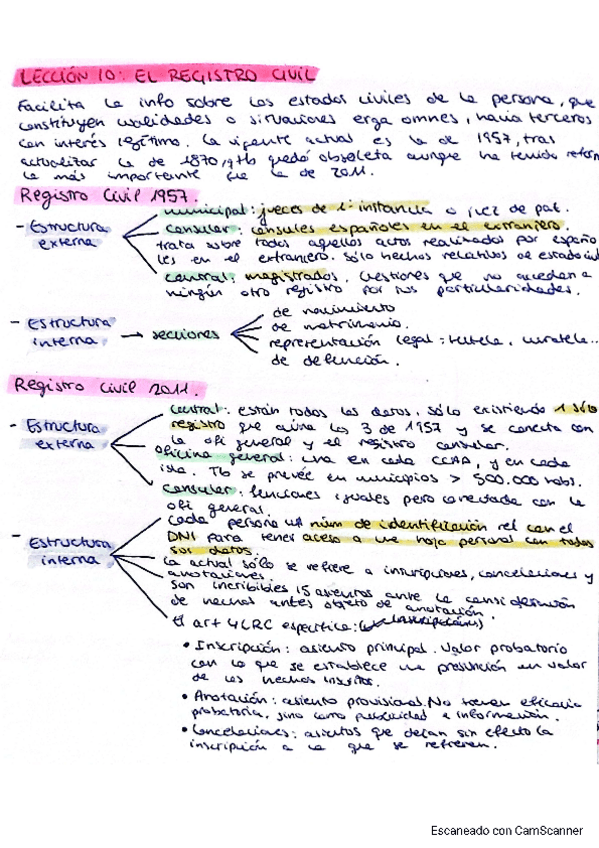 LECCIÓN 10: EL REGISTRO CIVIL
Facilita la info sobre los estados civiles de la persona, que
constituyen cualidades o situaciones erga omnes, hacia terceros
con interés legítimo. La vigente actual es la de 1957, tras
actualizar la de 1870, q tb quedó obsoleta aunque ha tenido reform
la más importante fue la de 2011.
Registro Civil 1957.
- Estructura externa
municipal: jueces de 1ª instancia o juez de paz.
consular: cónsules españoles en el extranjero.
trata sobre todos aquellos actos realizados por españo
les en el extranjero. Sólo hechos relativos de estado civil
central: magistrados. Cuestiones que no accedan a
ningún otro registro por sus particularidades.
- Estructura interna → secciones
de nacimiento
de matrimonio.
representación legal: tutela, curatela..
de defunción.
Registro Civil 2011.
- Estructura externa
central: están todos los datos, sólo existiendo 1 sólo
registro que aúna los 3 de 1957 y se conecta con
la ofi general y el registro consular.
oficina general: una en cada CCAA, y en cada
isla. Tb se prevée en municipios > 500.000 habs.
consular: funciones iguales pero conectada con la
ofi general.
- Estructura interna
cada persona un núm de identificación rel con el
DNI para tener acceso a una hoja personal con todos
sus datos.
La actual sólo se refiere a inscripciones, cancelaciones y
anotaciones
son incribibles 15 asientos ante la consideración
de hechos antes objeto de anotación.
El art 4 LRC especifica:
• Inscripción: asiento principal. Valor probatorio
con lo que se establece una presunción en valor
de los hechos inscritos.
• Anotación: asiento provisional. No tienen eficacia
probatoria, sino como publicidad e información.
• Cancelaciones: asientos que dejan sin efecto la
inscripción a la que se refieren.
Escaneado con CamScanner